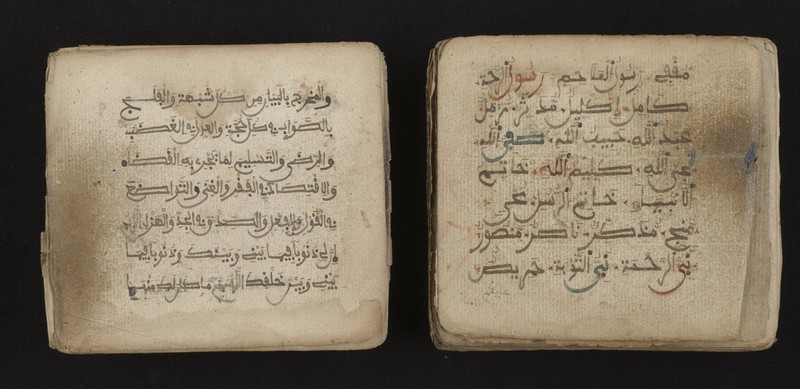 مقفي رسول الملاحم رسول الراحة
كامل إكليل مدثر مزمل
عبد الله حبيب الله صفي الله
نجي الله كليم الله خاتم
الأنبياء خاتم الرسل محيي
منج مذكر ناصر منصور
نبي الرحمة نبي التوبة حريص
والمخرج بالبيان من كل شبهة والفلج
بالصواب في كل حجة والعدل في الغضب
والرضى والتسليم لما يجري به القضاء
والاقتصاد في الفقر والغنى والتواضع
في القول والفعل والصدق في الجد والهزل اللهم
إن لي ذنوبا فيما بيني وبينك وذنوبا فيما
بيني وبين خلقك اللهم ما كان لك منها